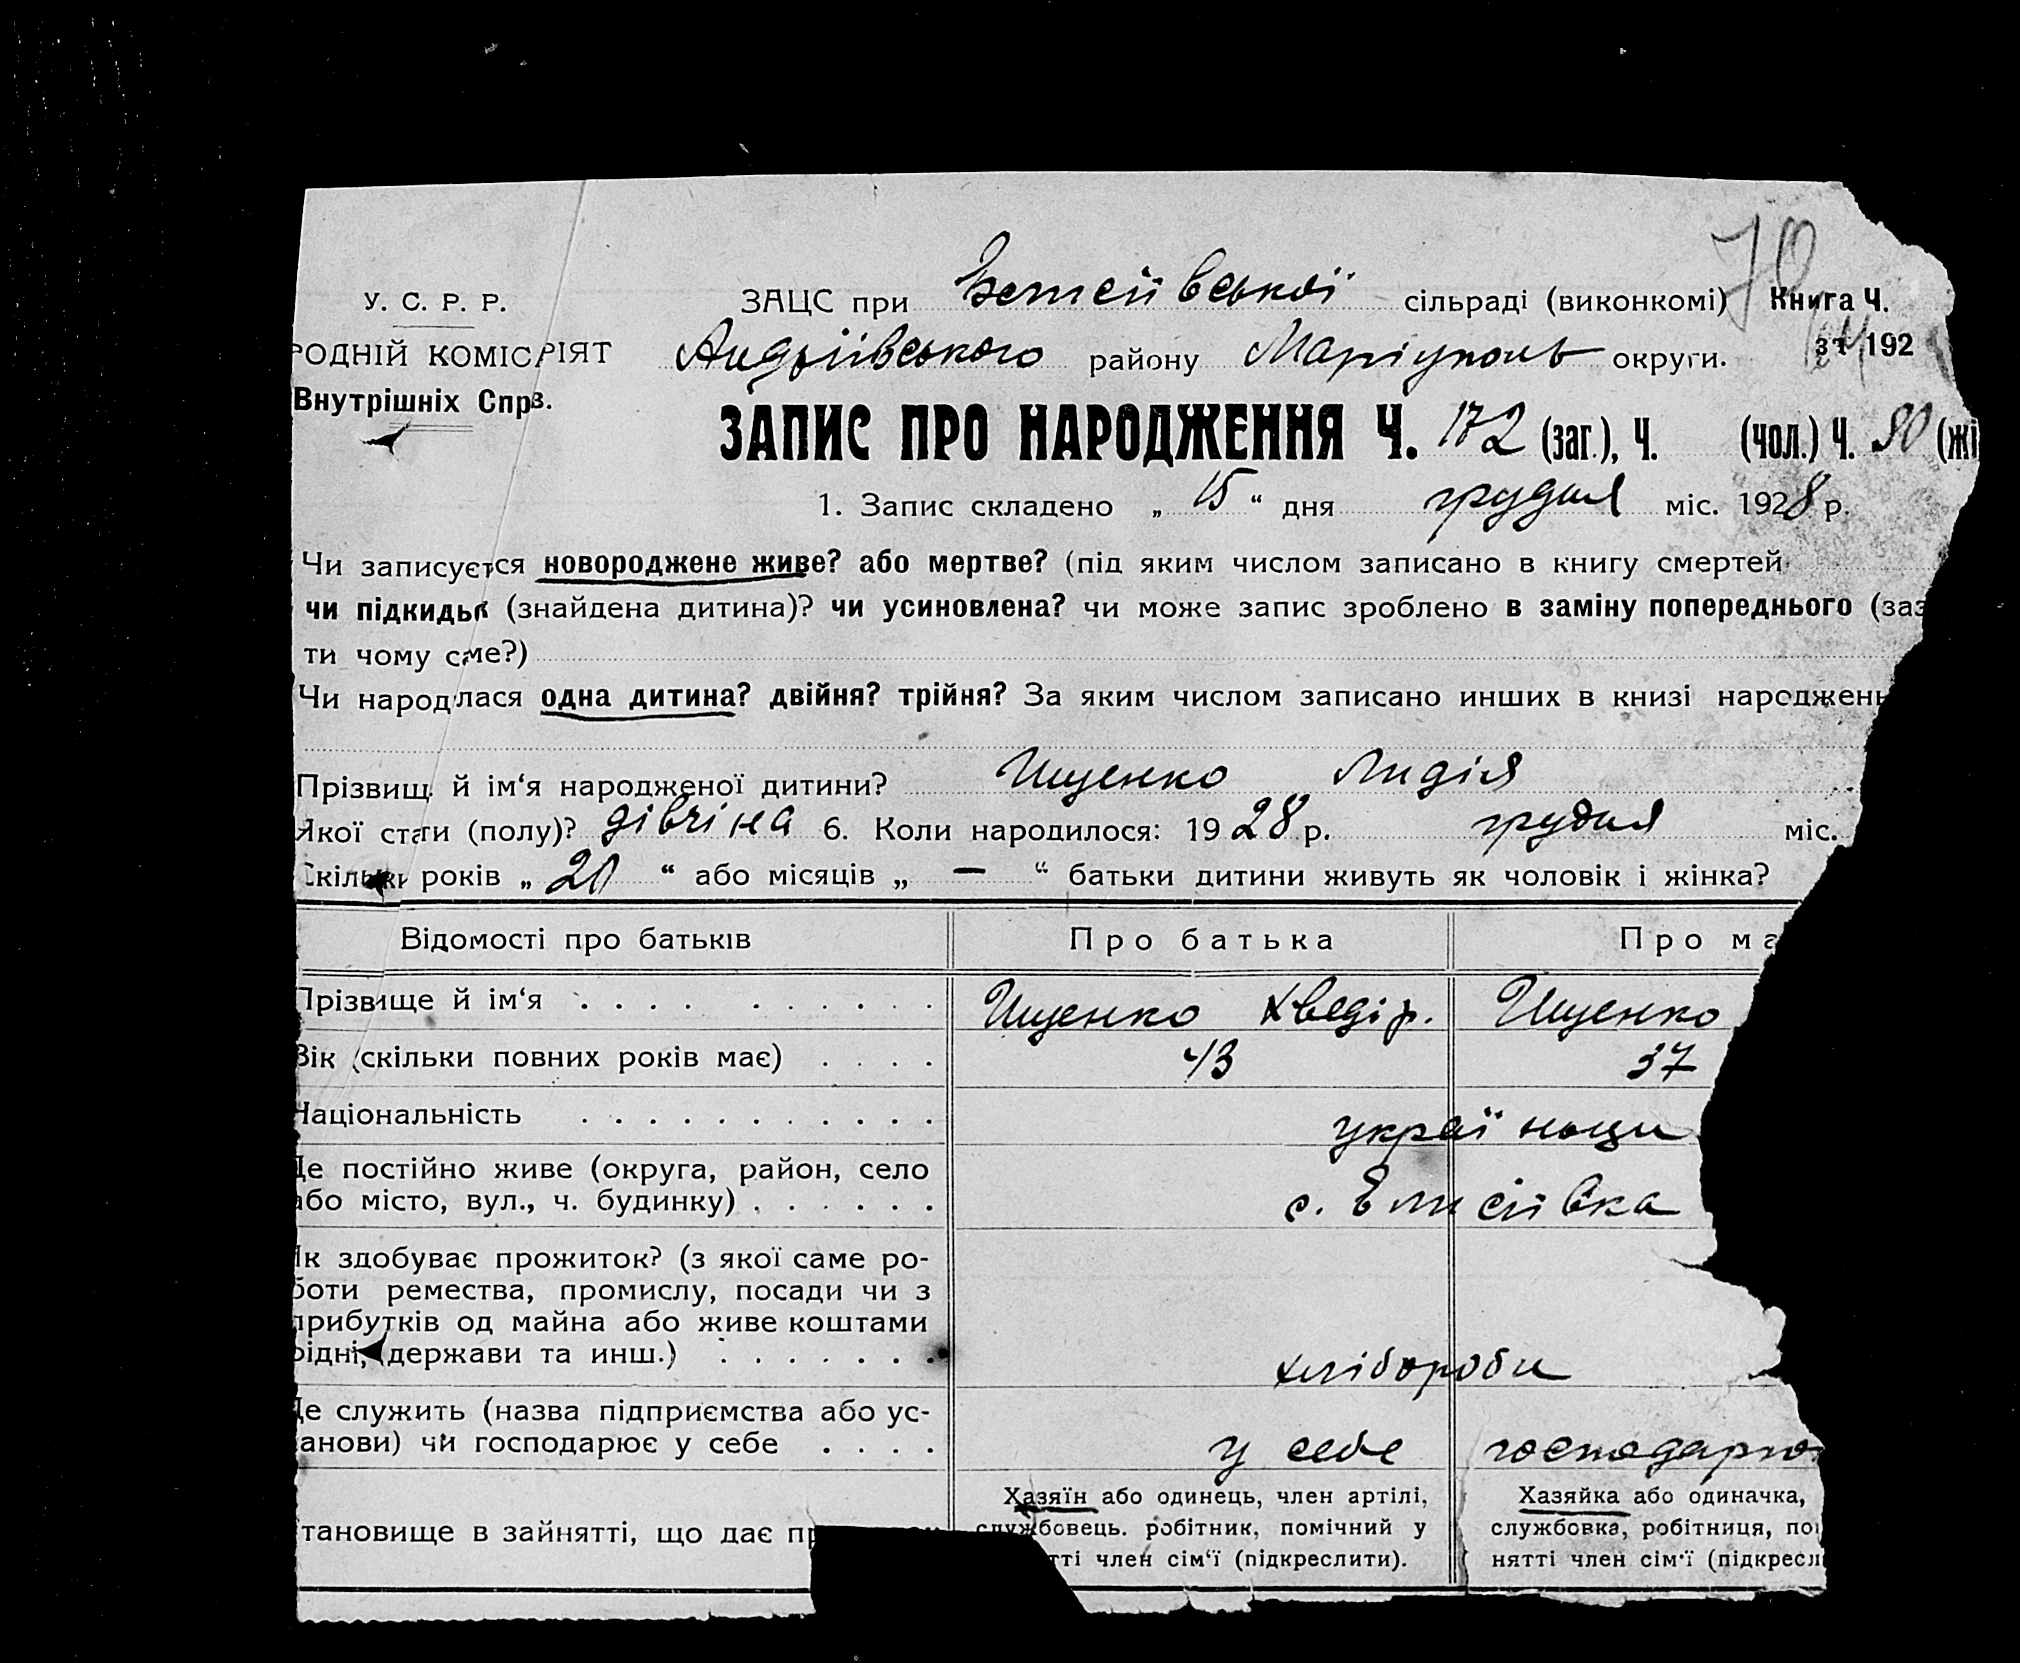 70
У. С. Р. Р.
ЗАЦС при сільраді (виконкомі) Книга Ч.
РОДНІЙ КОМІСАРІЯТ Андріївського району Маріуполь округи. за 192
Внутрішніх Спрв.
ЗАПИС ПРО НАРОДЖЕННЯ Ч. 172 (заг.), Ч. (чол.) Ч. 80 (жі
1. Запис складено „ 15 “ дня грудня міс. 1928 р.
Чи записується новороджене живе? або мертве? (під яким числом записано в книгу смертей
чи підкидьк (знайдена дитина)? чи усиновлена? чи може запис зроблено в заміну попереднього (заз
ти чому саме?)
Чи народилася одна дитина? двійня? трійня? За яким числом записано инших в книзі народжень
Прізвищ й ім‘я народженої дитини? Ищенко Лидія
Якої стати (полу)? дівчіна 6. Коли народилося: 1928 р. грудня міс.
Скільки років „ 20 “ або місяців „ — “ батьки дитини живуть як чоловік і жінка?
Відомості про батьків Про батька Про ма
Прізвище й ім‘я Ищенко Хведір. Ищенко
Вік (скільки повних років має) 43 37
Національність україньци
Де постійно живе (округа, район, село
або місто, вул., ч. будинку) с. Елисіївка
Як здобуває прожиток? (з якої саме ро-
боти ремества, промислу, посади чи з
прибутків од майна або живе коштами
рідні, держави та инш.) хлібороби
Де служить (назва підприємства або ус-
танови) чи господарює у себе у себе господарю
Хазяїн або одинець, член артілі, Хазяйка або одиначка,
становище в зайнятті, що дає пр службовець. робітник, помічний у службовка, робітниця, по
тті член сім‘ї (підкреслити). нятті член сім‘ї (підкресл